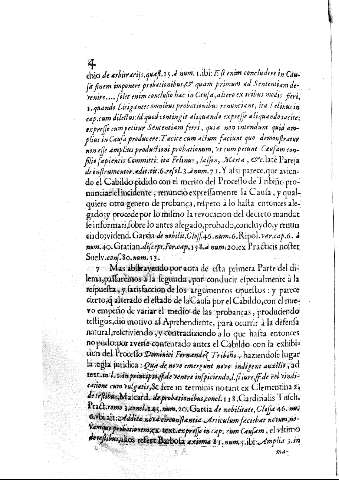 4
chio de arbitrarijs, quæst. 25. à num. 1. ibi: Est enim concludere in Cau-
sa finem imponere probationibus, & quam primum ad Sententiam de-
venire.... solet enim conclusio hac in Causa, altero ex tribus modis fieri,
1. quando Litigantes omnibus probationibus renuntiant, ita
cap. cum dilectus: id quod contingit aliquando expresse aliquando tacite:
expresse cum petitur Sententiam ferri, quia non intendunt quid am-
plius in Causa producere. Tacite cum actum faciunt quo demonstrative
non esse amplius producturi probationem, ut cum petunt Causam con-
silio sapientis Committi: ita Felinus, Jason, Maria, &c. late Pareja
de instrumentor. edit. tit. 6. resol. 3. à num. 71. Y assi parece, que avien-
do el Cabildo pidido con el merito del Processo de Tribiño pro-
nunciasse el incidente, renunciò expressamente la Causa, y qual-
quiere otro genero de probança, respeto à lo hasta entonces ale-
gado; y procede por lo mismo la revocacion del decreto mandat
se informar, sobre lo antes alegado, probado, concluydo, y renun-
ciado; vidend. Garcia de nobilit. Gloss. 45. num. 6. Ripol. var. cap. 6. à
num. 40. Gratian. discept. For. cap. 158. à num. 20. ex Practicis noster
Suelv. cons. 80. num. 13.
7 Mas abstrayendo por aora de esta primera Parte del di-
lema, passarèmos à la segunda, por conducir especialmente à la
respuesta, y satisfaccion de los argumentos opuestos: y parece
cierto, q̃ alterado el estado de la Causa por el Cabildo, con el nue-
vo empeño de variar el medio de las probanças, produciendo
testigos, dio motivo al Aprehendente, para ocurrir à la defensa
natural, reiviviendo, y contradiciendo à lo que hasta entonces
no pudo por averse contentado antes el Cabildo con la exhibi-
cion del Processo Dominici Fernandez Tribiño, haziendose lugar
la regla juridica: Qua de novo emergunt novo indigent auxilio, ad
text. in l. de ventre inspiciendo, l. si vero, ff. de rei vindi-
catione cum vulgatis, & sirve in terminos notant ex Clementina 2.
de testibus, Mascard. de probationibus, concl. 118. Cardinalis Tusch.
Pract. tomo 2. concl. 245. num. 20. Garcia de nobilitate, Glossa 46. num.
6. ibi: Addito nova circunstantia Articulari naturam, non no-
text. expresso in cap. cum Causam, el vltimo
de testibus, alios refert Barbosa axioma 23. num. 5. ibi: Amplia 3. in
ma-